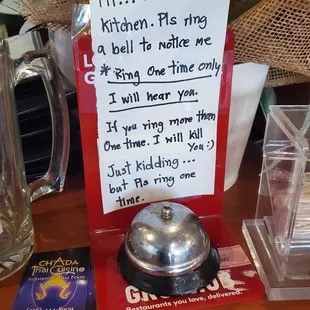 kitchen. Pls ring
a bell to Notice me
* Ring One time only
I will hear you.
If you ring more than
One time. I will kill
You :)
Just kidding...
but Pls ring one
time.
CHADA
Thai Cuisine
Restaurants you love, delivered.